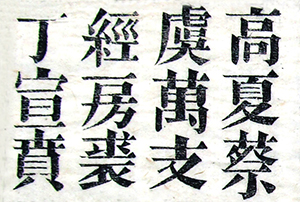 高夏蔡
虞萬支
經房裘
丁宣賁